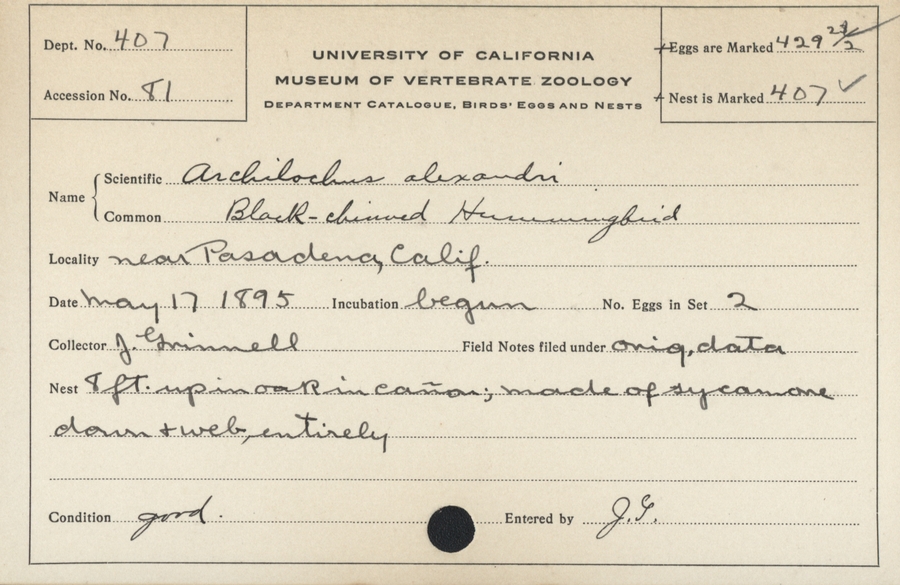 Dept. No. 407
Accession No. 81
UNIVERSITY OF CALIFORNIA
MUSEUM OF VERTEBRATE ZOOLOGY
DEPARTMENT CATALOGUE, BIRDS' EGGS AND NESTS
+ Eggs are Marked 429 21/2
+ Nest is Marked 407 ✓
Name
Scientific Archilochus alexandri
Common Black-chinned Hummingbird
Locality near Pasadena, Calif.
Date May 17 1895 Incubation begun No. Eggs in Set 2
Collector J. Grinnell Field Notes filed under orig. data
Nest 8 ft. up in oak in cañon; made of sycamore
down + web, entirely
Condition good. Entered by J.G.